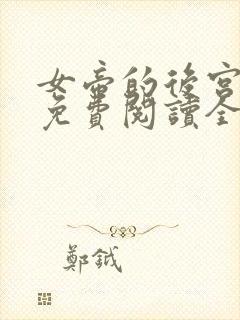 女帝的後宮
免費閱讀全
鄭鉞